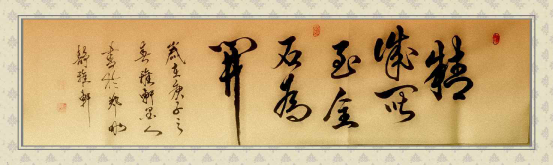 精
誠所
至金
石為
開
歲在庚子之
春雅軒
書於鄭州
靜雅軒